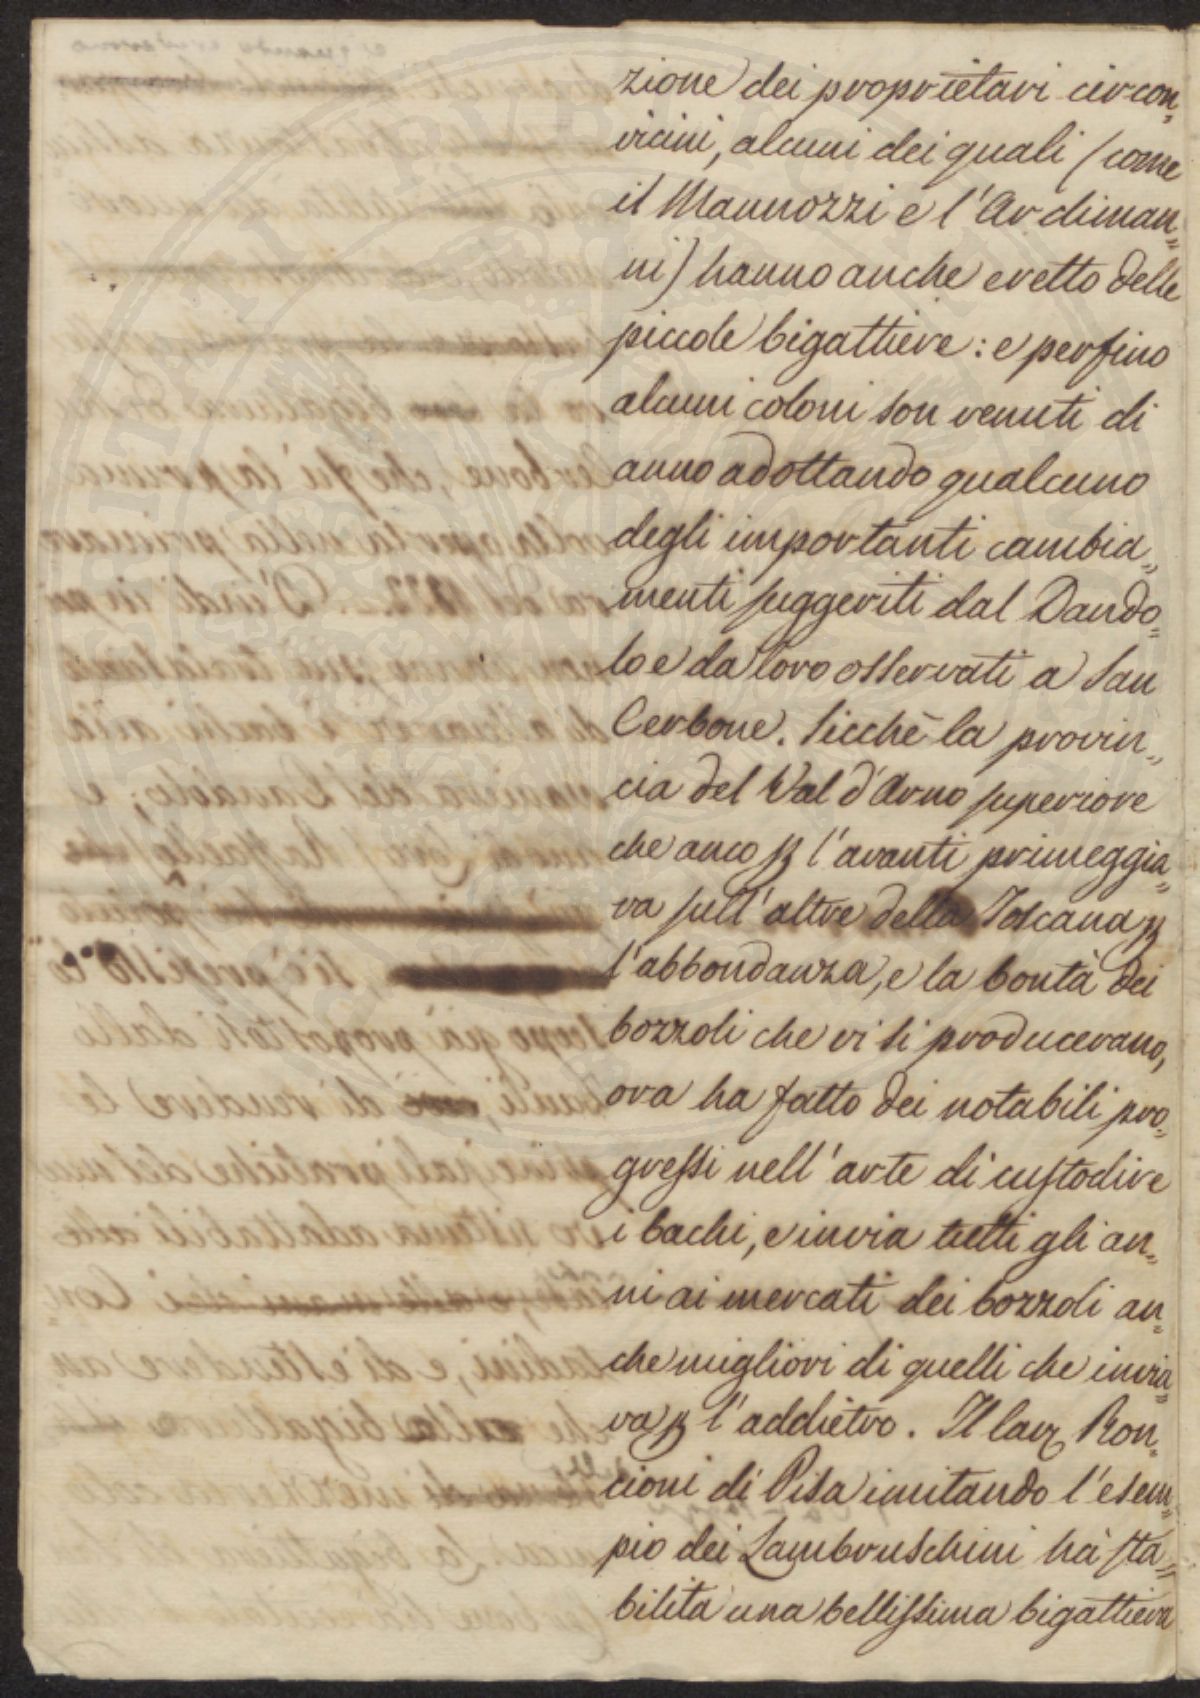 zione dei proprietari circon„
vicini, alcuni dei quali (come
il Mannozzi e l'Ardiman„
ni) hanno anche eretto delle
piccole bigattiere: e perfino
alcuni coloni son venuti di
anno adottando qualcuno
degli importanti cambia„
menti suggeriti dal Dando„
lo e da loro osservati a San
Cerbone. Sicchè la provin„
cia del Val d'Arno superiore
che anco p l'avanti primeggia„
va sull'altre della Toscana p
l'abbondanza, e la bontà dei
bozzoli che vi si producevano,
ora ha fatto dei notabili pro„
gressi nell'arte di custodire
i bachi, e invia tutti gli an„
ni ai mercati dei bozzoli an„
che migliori di quelli che invia„
va p l'addietro. Il Ron„
cioni di Pisa imitando l'esem„
pio dei Lambruschini hà sta„
bilita una bellissima bigattiera